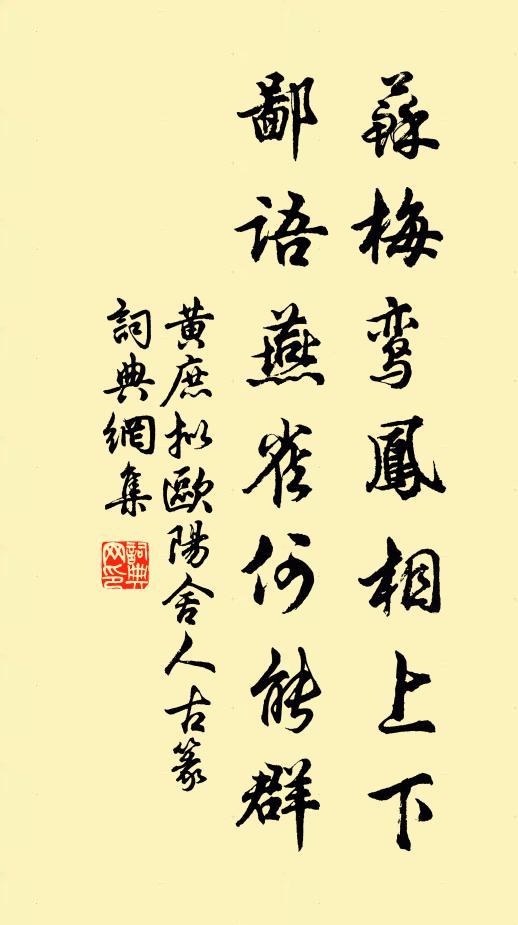 蘇梅鸾鳳相上下
鄙語燕雀何能群
黄庶拟歐陽舍人古篆
詞典網集
詞典網印